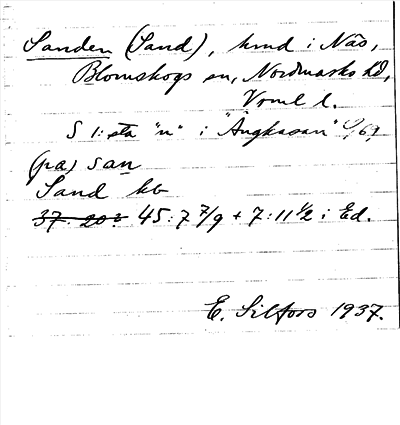 Sanden (Sand), hmd i Näs,
Blomskogs sn, Nordmarks hd,
Vrml l.
S 1: sta "n" i "Ängkasan" 
(pa) san
Sand kb
37. 20 2. 45:7 7/9 + 7:11 1/2 i Ed.
E. Silfors 1937.